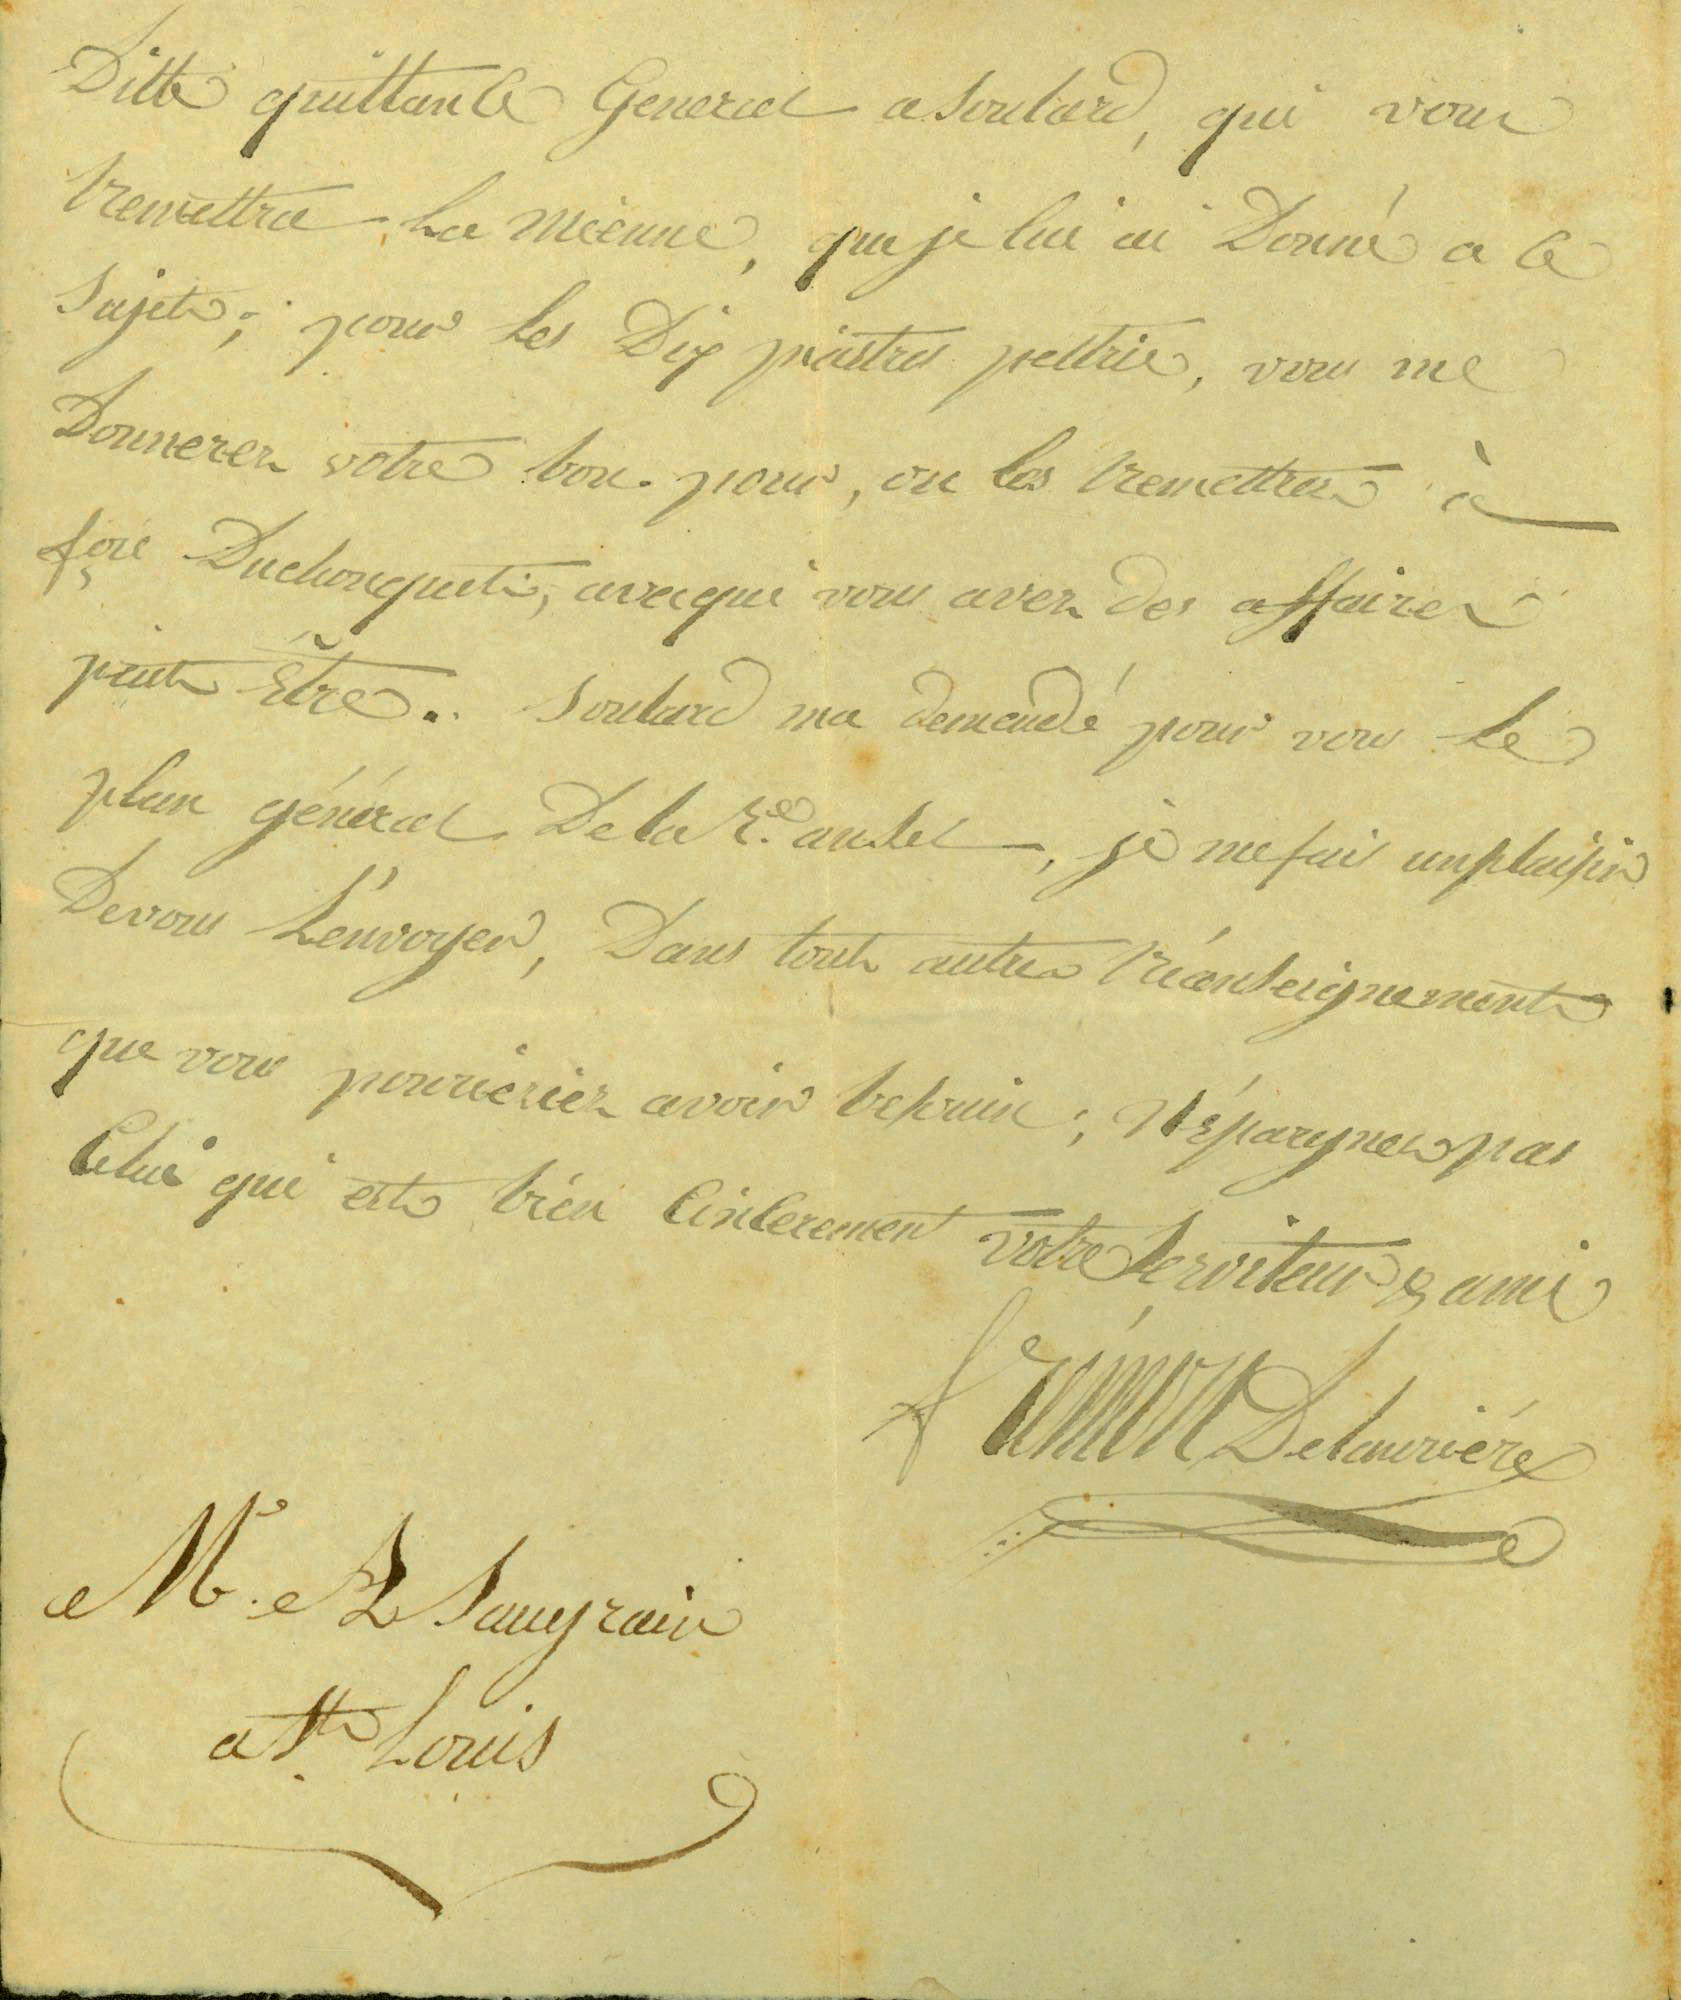 Ditte quittance General a Soulard, qui vous
remettra La mienne, que je lui ai Donné a ce
Sujet; pour Les Dix piastres peltrie, vous me
Donnerez votre bon pour, ou les remettrez à
fçoi Duchouquete, avec qui vous avez des affaires
peut Être.. Soulard ma demandé pour vous Le
plan général De la Re. au Sel, je me fais un plaisir
De vous L'envoyer, Dans tout autre réenseignements
que vous pouriériez avoir besoin; N'épargnez pas
Celui qui est bien Cincerement votre Serviteur & ami
frémon Delauriére
a Mr. A Saugrain
a St. Louis